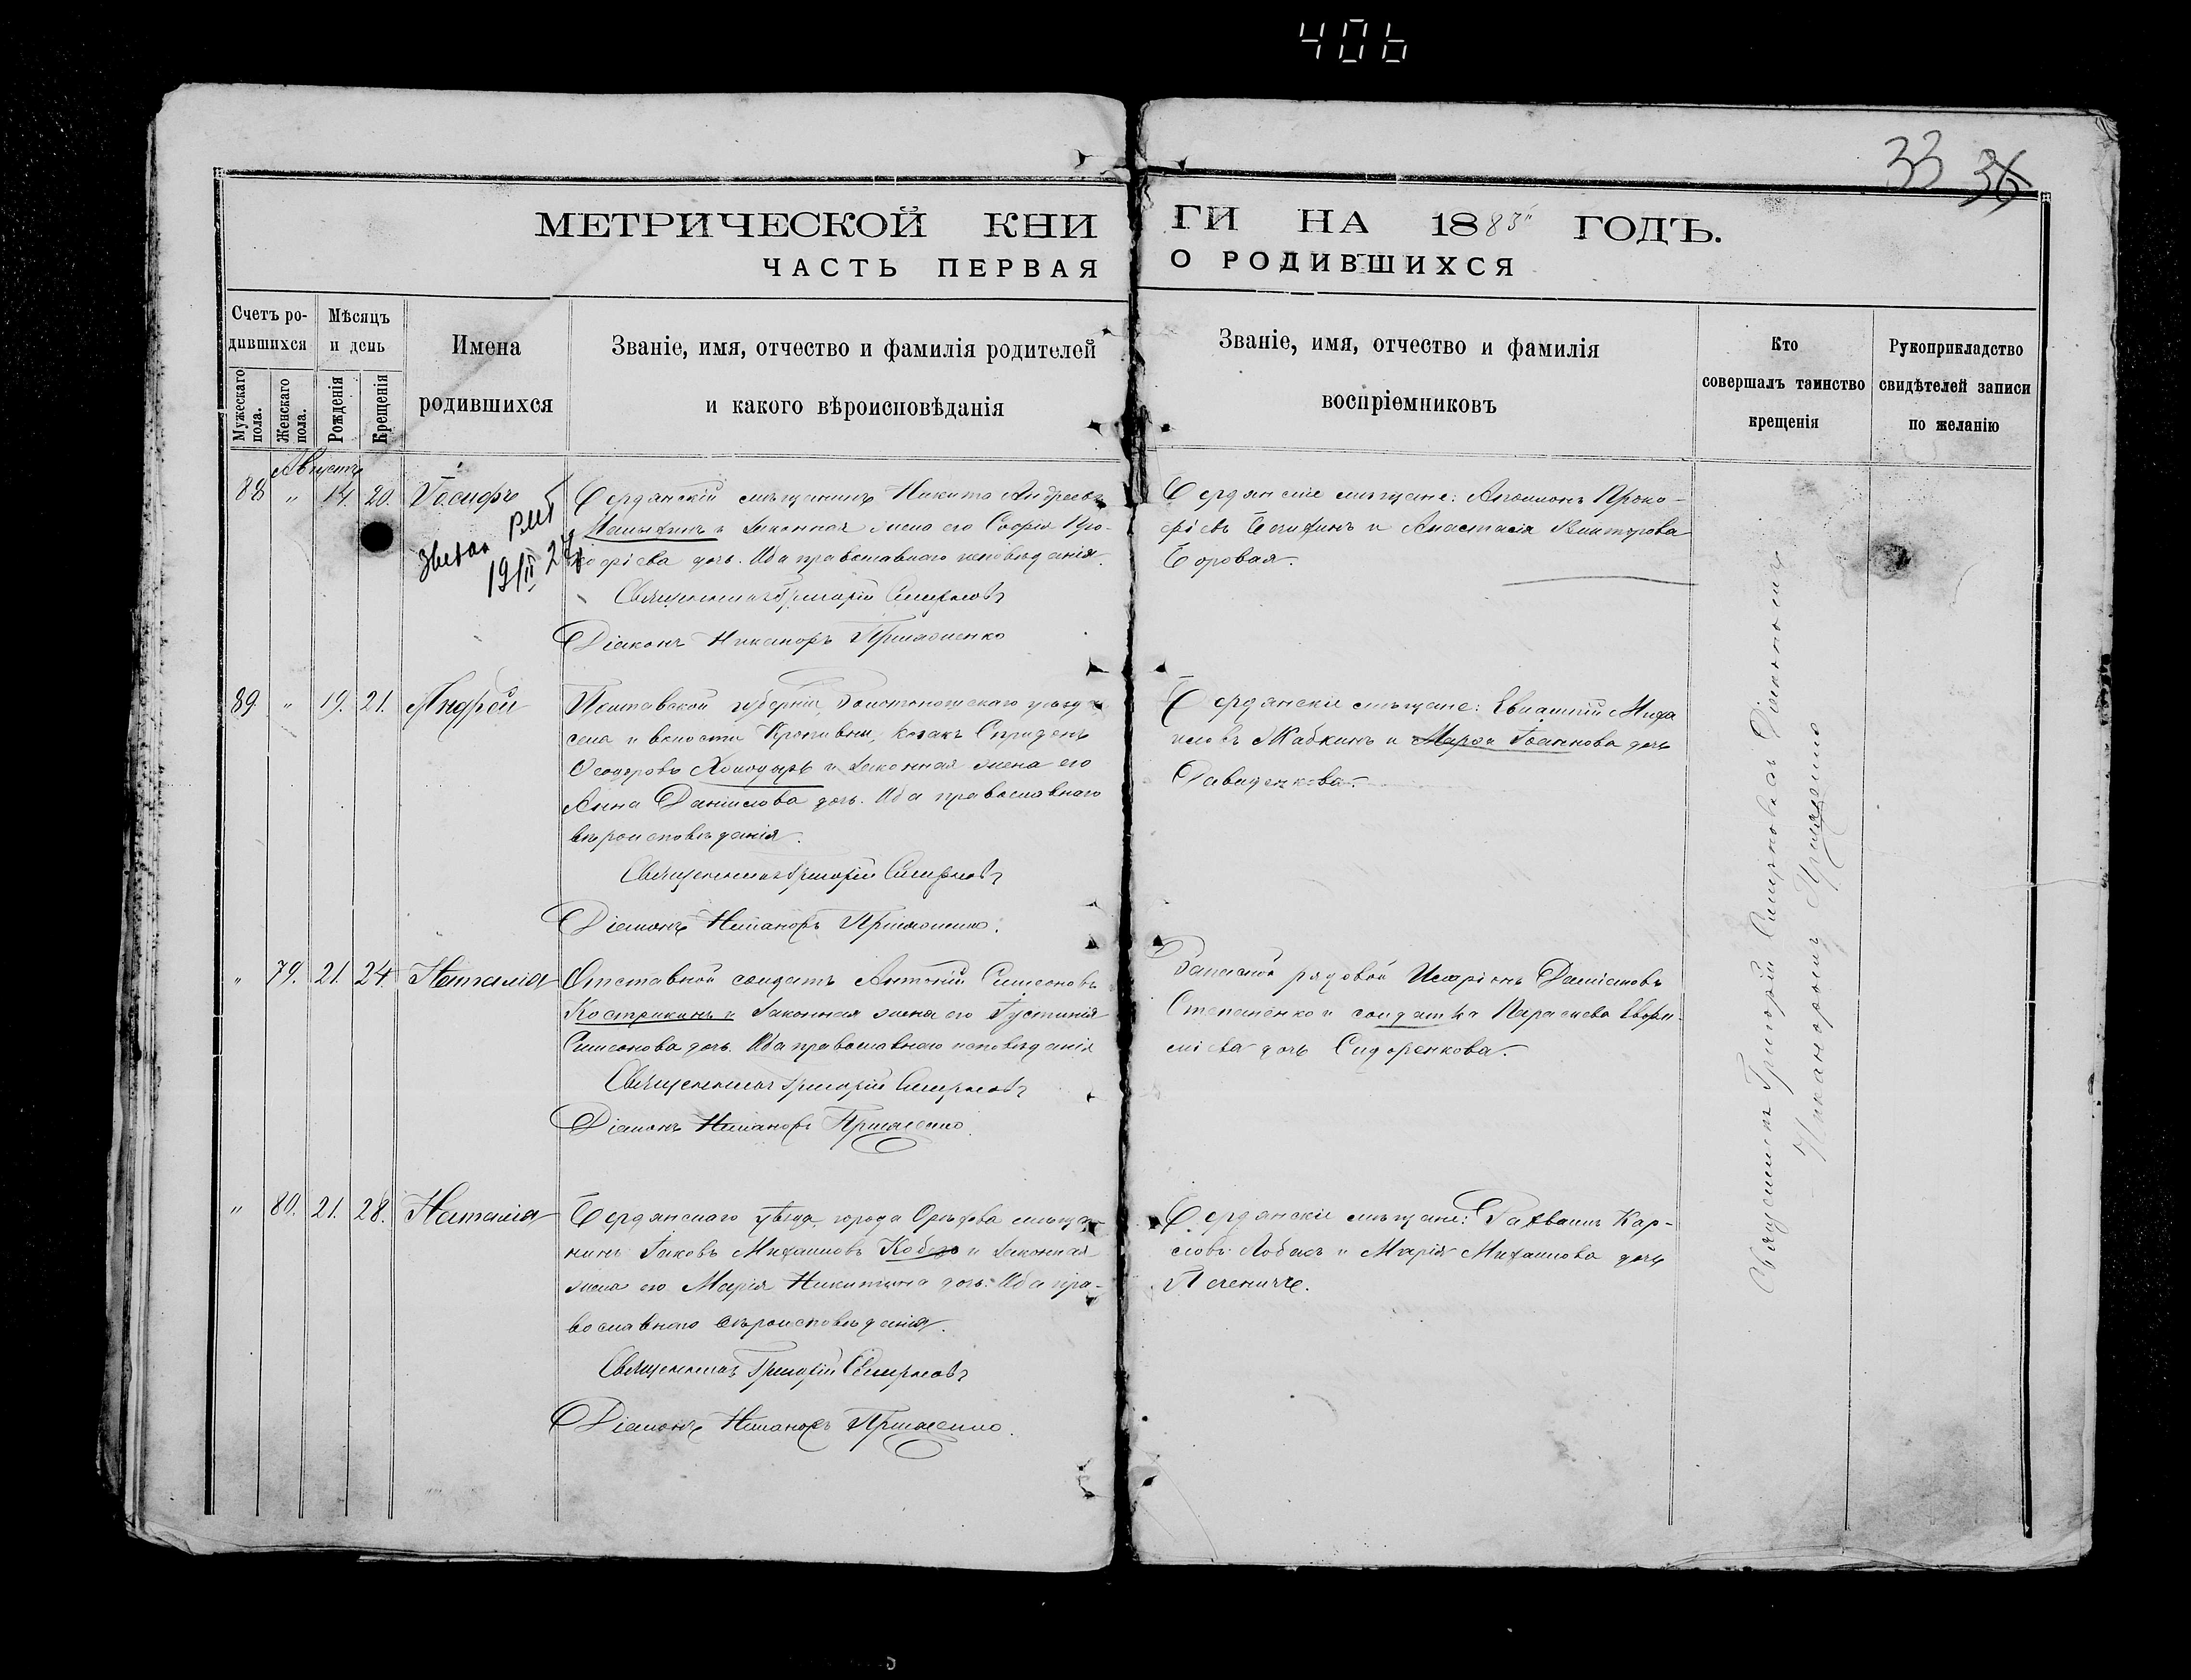 406
33 36
МЕТРИЧЕСКОЙ КНИ
ГИ НА 1883й ГОДЪ.
ЧАСТЬ ПЕРВАЯ
О РОДИВШИХСЯ
Счетъ ро-
дившихся
Мужескаго пола.
Женскаго пола.
Мѣсяцъ
и день
Рожденія
Крещенія
Имена
родившихся
Званіе, имя, отчество и фамилія родителей
и какого вѣроисповѣданія
Званіе, имя, отчество и фамилія
воспріемниковъ
Кто
совершалъ таинство
крещенія
Рукоприкладство
свидѣтелей записи
по желанію
Августъ
88 " 14. 20. Іосифъ
19/II 24
Бердянскій мѣщанинъ Никита Андреевъ
и законная жена его Софія Про-
кофіева дочь. Оба православнаго исповѣданія.
Священникъ Григорій Смирновъ
Діаконъ Никаноръ Примаченко
Бердянскіе мѣщане: Проко-
фіевъ и Анастасія Викторова
Боровая.
89 " 19. 21. Андрей
Полтавской губерніи, Золотоношскаго уѣзда
села и волости Кропивны, козакъ Спиридонъ
Ѳеодоровъ и законная жена его
Анна Даніилова дочь. Оба православнаго
вѣроисповѣданія.
Священникъ Григорій Смирновъ
Діаконъ Никаноръ Примаченко.
Бердянскіе мѣщане: Евлампій Миха
иловъ Жабкинъ и Марѳа Іоаннова дочь
Давиденкова.
" 79. 21. 24. Наталія
Отставной солдатъ Антоній Симеоновъ
Кострикинъ и законная жена его Іустинія
Симеонова дочь. Оба православнаго исповѣданія
Священникъ Григорій Смирновъ
Діаконъ Никаноръ Примаченко.
Запасной рядовой Иларіонъ Даміановъ
Степаненко и солдатка Параскева Евфи-
міева дочь Сидоренкова.
" 80. 21. 28. Наталія
Бердянскаго уѣзда, города Орѣхова мѣща-
нинъ Іаковъ Михаиловъ и законная
жена его Марія Никитина дочь. Оба пра-
вославнаго вѣроисповѣданія.
Священникъ Григорій Смирновъ
Діаконъ Никаноръ Примаченко.
Бердянскіе мѣщане: Кар-
повъ и Марія Михаилова дочь
Священникъ Григорій Смирновъ съ Діакономъ
Никаноромъ Примаченко